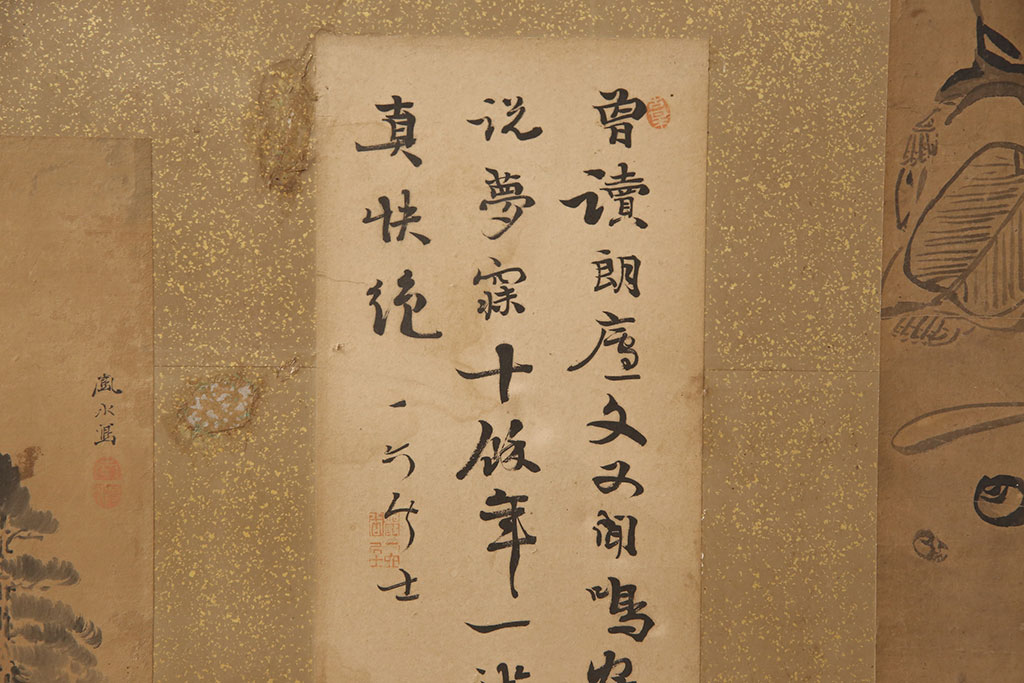 曽讀朗廬文又聞鳴
説夢寐十餘年一
真快絶
一
士
嵐水寫